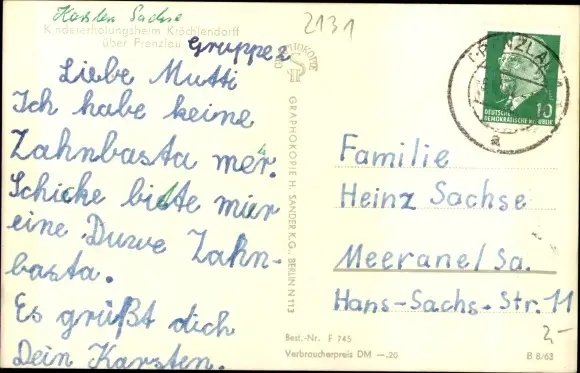 Karsten Sachse
Kindererholungsheim Kröchlendorff
über Prenzlau
Gruppe 2
Liebe Mutti
Ich habe keine
Zahnbasta mer.
Schicke bidte mier
eine Duwe Zahn-
basta.
Es grüßt dich
Dein Karsten.
2131
GRAPHOKOPIE H. SANDER K.G., BERLIN N 113
PRENZLAU
a
10
DEUTSCHE
DEMOKRATISCHE REPUBLIK
Familie
Heinz Sachse
Meerane/Sa.
Hans-Sachs-Str. 11
2,-
Best.-Nr. F 745
Verbraucherpreis DM —.20
B 8/63